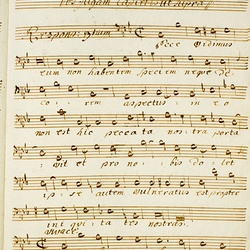 Respons: 9lum
Ecce vidimus
eum non habentem speciem neque de-
co- rem aspectus in e- o
non est hic peccata nostra porta
vit et pro no- bis do- let
ip- se autem vulneratus est propter
ini qui ta tes nostras.